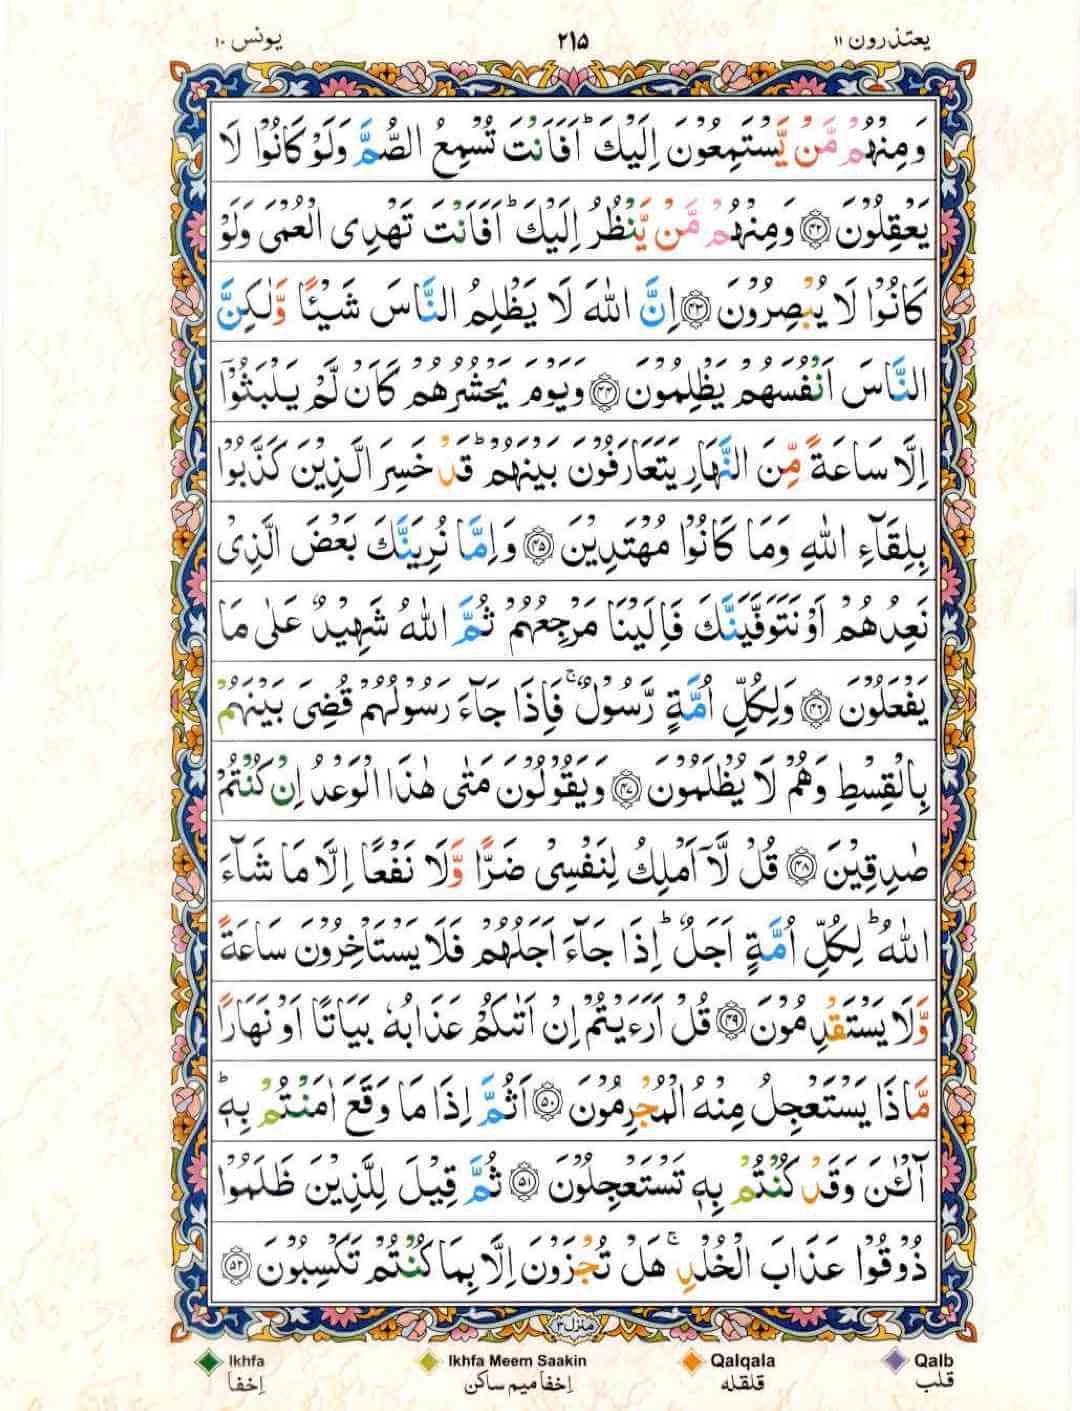 یعتذرون ۱۱ ۲۱۵ یونس ۱۰
وَمِنْهُمْ مَّنْ يَّسْتَمِعُوْنَ اِلَيْكَ ؕ اَفَاَنْتَ تُسْمِعُ الصُّمَّ وَلَوْ كَانُوْا لَا
يَعْقِلُوْنَ ﴿۴۲﴾ وَمِنْهُمْ مَّنْ يَّنْظُرُ اِلَيْكَ ؕ اَفَاَنْتَ تَهْدِى الْعُمْىَ وَلَوْ
كَانُوْا لَا يُبْصِرُوْنَ ﴿۴۳﴾ اِنَّ اللّٰهَ لَا يَظْلِمُ النَّاسَ شَيْـًٔا وَّلٰكِنَّ
النَّاسَ اَنْفُسَهُمْ يَظْلِمُوْنَ ﴿۴۴﴾ وَيَوْمَ يَحْشُرُهُمْ كَاَنْ لَّمْ يَلْبَثُوْۤا
اِلَّا سَاعَةً مِّنَ النَّهَارِ يَتَعَارَفُوْنَ بَيْنَهُمْ ؕ قَدْ خَسِرَ الَّذِيْنَ كَذَّبُوْا
بِلِقَآءِ اللّٰهِ وَمَا كَانُوْا مُهْتَدِيْنَ ﴿۴۵﴾ وَاِمَّا نُرِيَنَّكَ بَعْضَ الَّذِىْ
نَعِدُهُمْ اَوْ نَتَوَفَّيَنَّكَ فَاِلَيْنَا مَرْجِعُهُمْ ثُمَّ اللّٰهُ شَهِيْدٌ عَلٰى مَا
يَفْعَلُوْنَ ﴿۴۶﴾ وَلِكُلِّ اُمَّةٍ رَّسُوْلٌ ۚ فَاِذَا جَآءَ رَسُوْلُهُمْ قُضِىَ بَيْنَهُمْ
بِالْقِسْطِ وَهُمْ لَا يُظْلَمُوْنَ ﴿۴۷﴾ وَيَقُوْلُوْنَ مَتٰى هٰذَا الْوَعْدُ اِنْ كُنْتُمْ
صٰدِقِيْنَ ﴿۴۸﴾ قُلْ لَّاۤ اَمْلِكُ لِنَفْسِىْ ضَرًّا وَّلَا نَفْعًا اِلَّا مَا شَآءَ
اللّٰهُ ؕ لِكُلِّ اُمَّةٍ اَجَلٌ ؕ اِذَا جَآءَ اَجَلُهُمْ فَلَا يَسْتَاْخِرُوْنَ سَاعَةً
وَّلَا يَسْتَقْدِمُوْنَ ﴿۴۹﴾ قُلْ اَرَءَيْتُمْ اِنْ اَتٰىكُمْ عَذَابُهٗ بَيَاتًا اَوْ نَهَارًا
مَّاذَا يَسْتَعْجِلُ مِنْهُ الْمُجْرِمُوْنَ ﴿۵۰﴾ اَثُمَّ اِذَا مَا وَقَعَ اٰمَنْتُمْ بِهٖ ؕ
آٰلْـٰٔنَ وَقَدْ كُنْتُمْ بِهٖ تَسْتَعْجِلُوْنَ ﴿۵۱﴾ ثُمَّ قِيْلَ لِلَّذِيْنَ ظَلَمُوْا
ذُوْقُوْا عَذَابَ الْخُلْدِ ۚ هَلْ تُجْزَوْنَ اِلَّا بِمَا كُنْتُمْ تَكْسِبُوْنَ ﴿۵۲﴾
منزل ۳
Ikhfa Ikhfa Meem Saakin Qalqala Qalb
اِخفا اِخفا میم ساکن قلقله قلب